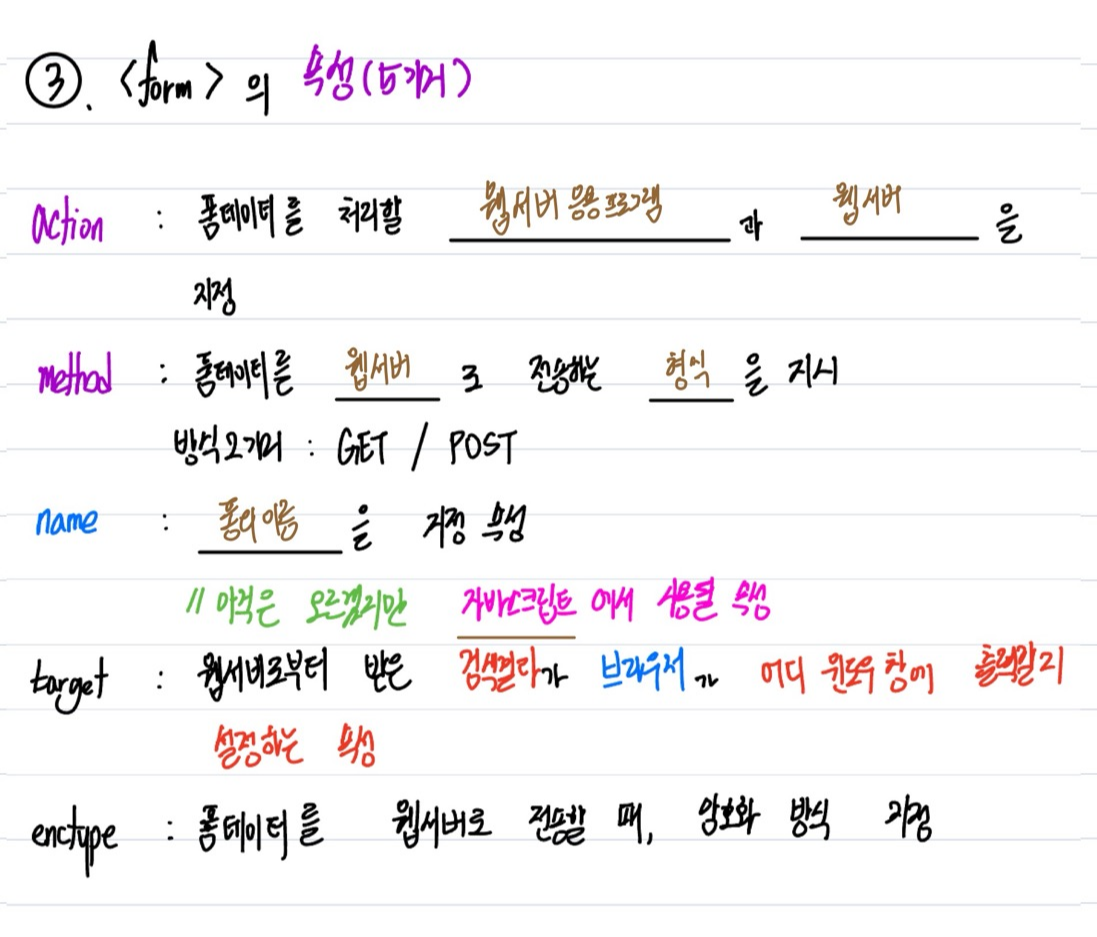 ③. <form> 의 속성(5가지)
action : 폼데이터를 처리할 웹서버 응용프로그램 과 웹서버 을
지정
method : 폼데이터를 웹서버 로 전송하는 형식 을 지시
방식2가지 : GET / POST
name : 폼의 이름 을 지정 속성
// 아직은 모르겠지만 자바스크립트 에서 사용될 속성
target : 웹서버로부터 받은 검색결과가 브라우저가 어디 윈도우 창에 출력할지
설정하는 속성
enctype : 폼데이터를 웹서버로 전송할 때, 암호화 방식 지정